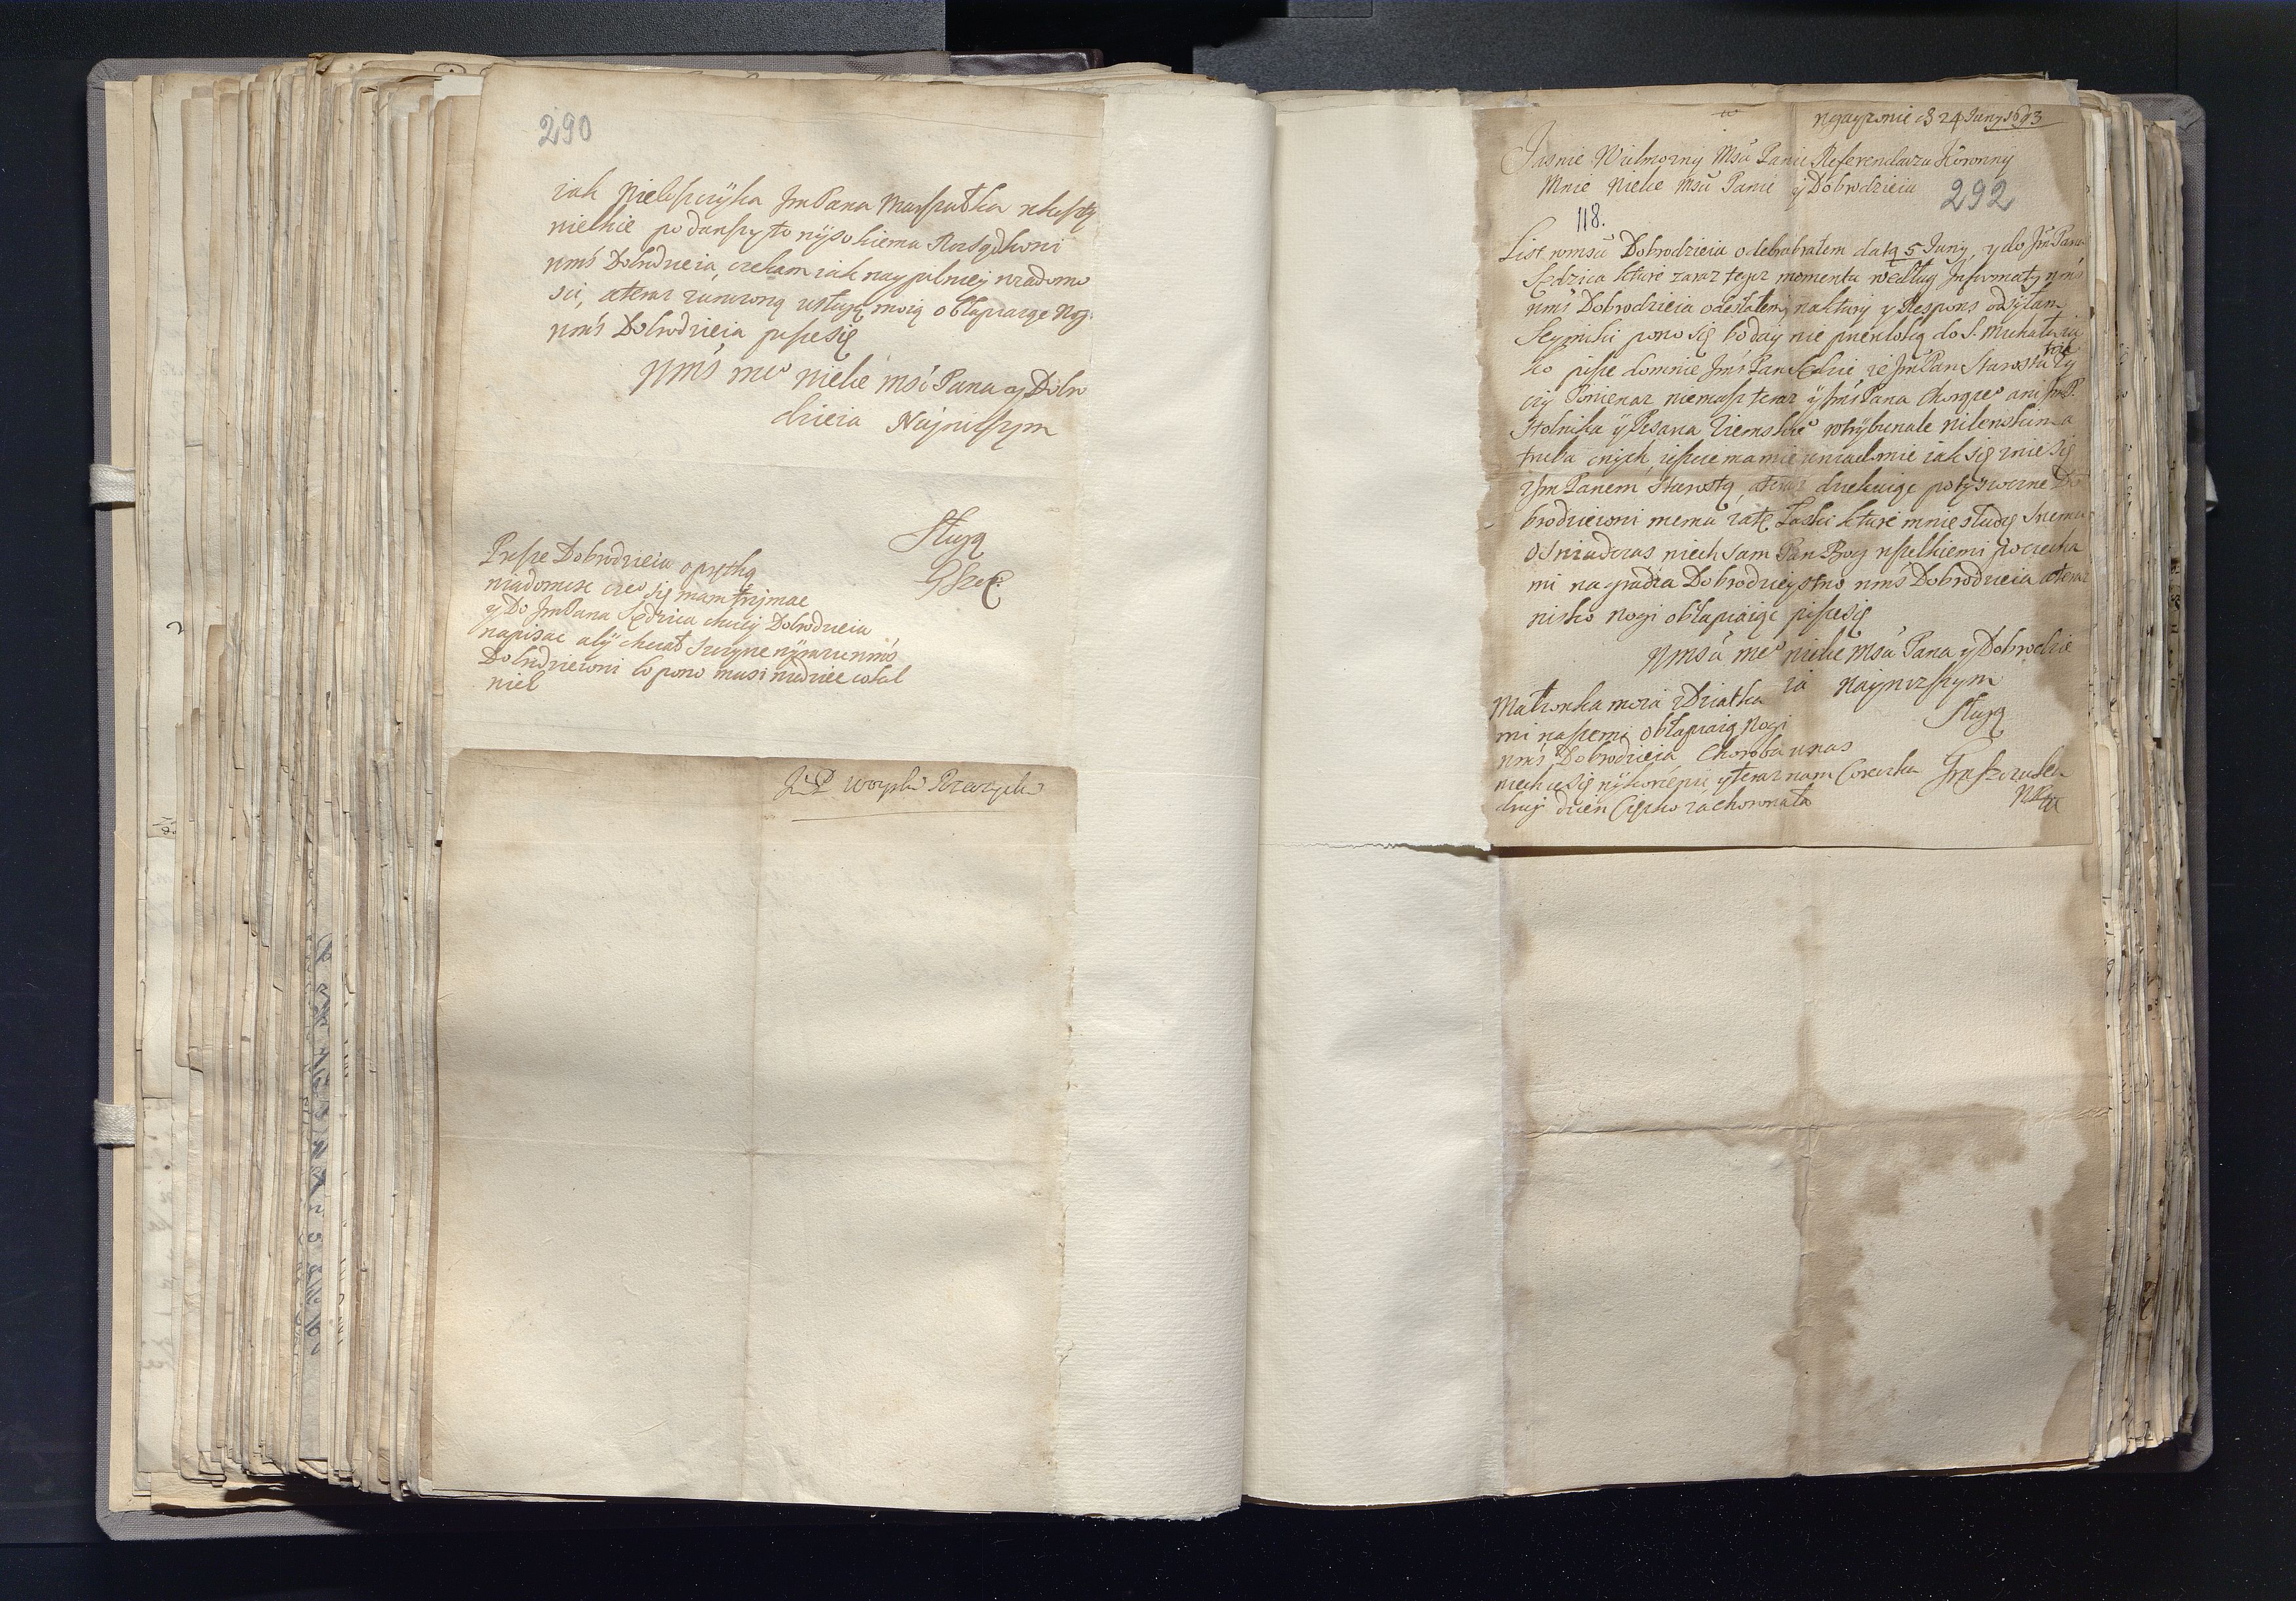 290
iak Wielgczyka Jm Pana Marszałka
wielkie podawszy to wysokiemu Rozsądkowi
wmś Dobrodzieia, czekam iak naypilniey wiadomo
sci, a teraz zuniżoną usługą moią obłapiaiąc Nog.
wmś Dobrodzieia piszesię
Wmś me° wielce mśi Pana y Dobro
dzieia Nayniższym
Sługą
Prosze Dobrodzieia o prętką
wiadomosc cze° się mam trzymac
y Do Jm Pana Sędzica chciey Dobrodzieia
napisac aby chciał wmś
Dobrodzieiowi bo pono musi wiedziec
Ngayzonie d 24 Juny 1693
Jasnie Wielmozny Msci Panie Referendarzu Koronny
Mnie Wielce Msci Panie y Dobrodzieiu
292
118.
List wmsci Dobrodzieia odebrałem datą 5 Juny, y do Jm Pana
Sędzica które zaraz tegoz momentu według Jnformaty wmś
wmś Dobrodzieia odesłałem, naktury y Respons odsyłam
Seymiki pono się boday nie przewloką do S. Michała ia
ko pisze domnie Jmś Pan Sędzic ze Jm Pan Starosta Zy
czy Poniewaz niemasz teraz y Jmś Pana Chorąże° ani Jm P.
Stolnika y Pisarza Ziemskie° w trybunale wilenskim a
trzeba onych, ieszcze mamie uwiadomic iak się zniesie
z Jm Panem Starostą, a teraz dziekuię potysioczne Do
brodzieiowi memu zatę Łaski które mnie słudze Swemu
Oswiadczas niech sam Pan Bog wszelkiemi pociecha
mi nagradza Dobrodzieystwo wmś Dobrodzieia a teraz
nisko nogi obłapiaiąc piszesię
Wmsci me° wielce Msci Pana y Dobrodzie
ia nayniższym
Sługą
Małzonka moia zDziatka
mi naszemi obłapiaią Nogi
wmś Dobrodzieia Choroba unas
niechce się wykorzenic y teraz nam Coreczka
drugi dzien Cięszko zachorowała